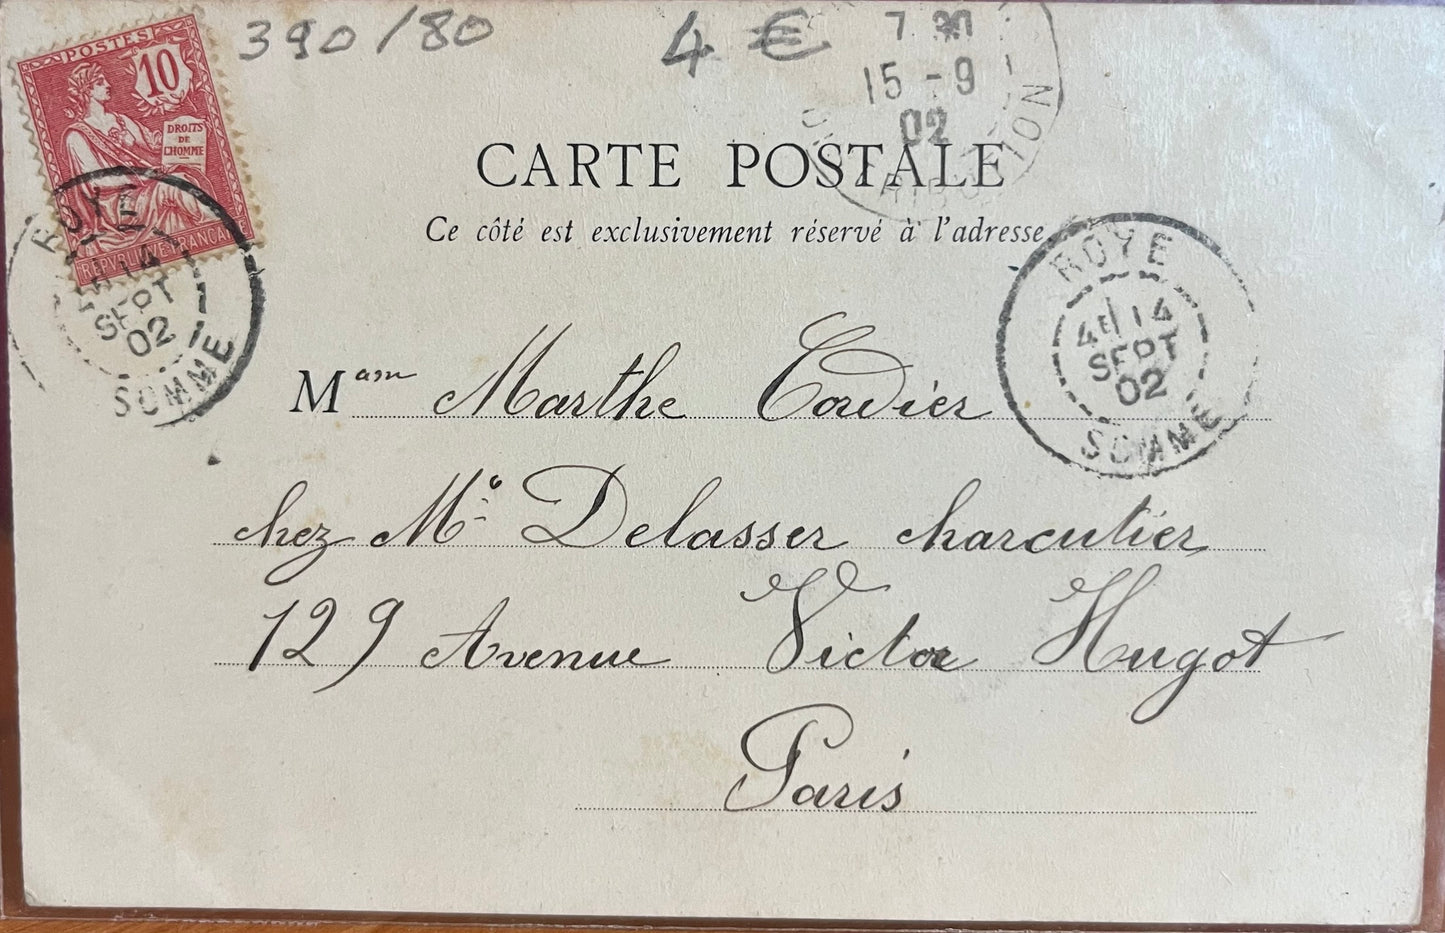 390/80
4 €
POSTES
10
DROITS
DE
L'HOMME
REPVBLIQVE FRANCAISE
7 30
15 - 9
02
DISTRIBUTION
CARTE POSTALE
Ce côté est exclusivement réservé à l'adresse.
ROYE
14
SEPT
02
SOMME
ROYE
4E 14
SEPT
02
SOMME
Mam Marthe Cordier
chez Mr Delasser charcutier
129 Avenue Victor Hugot
Paris